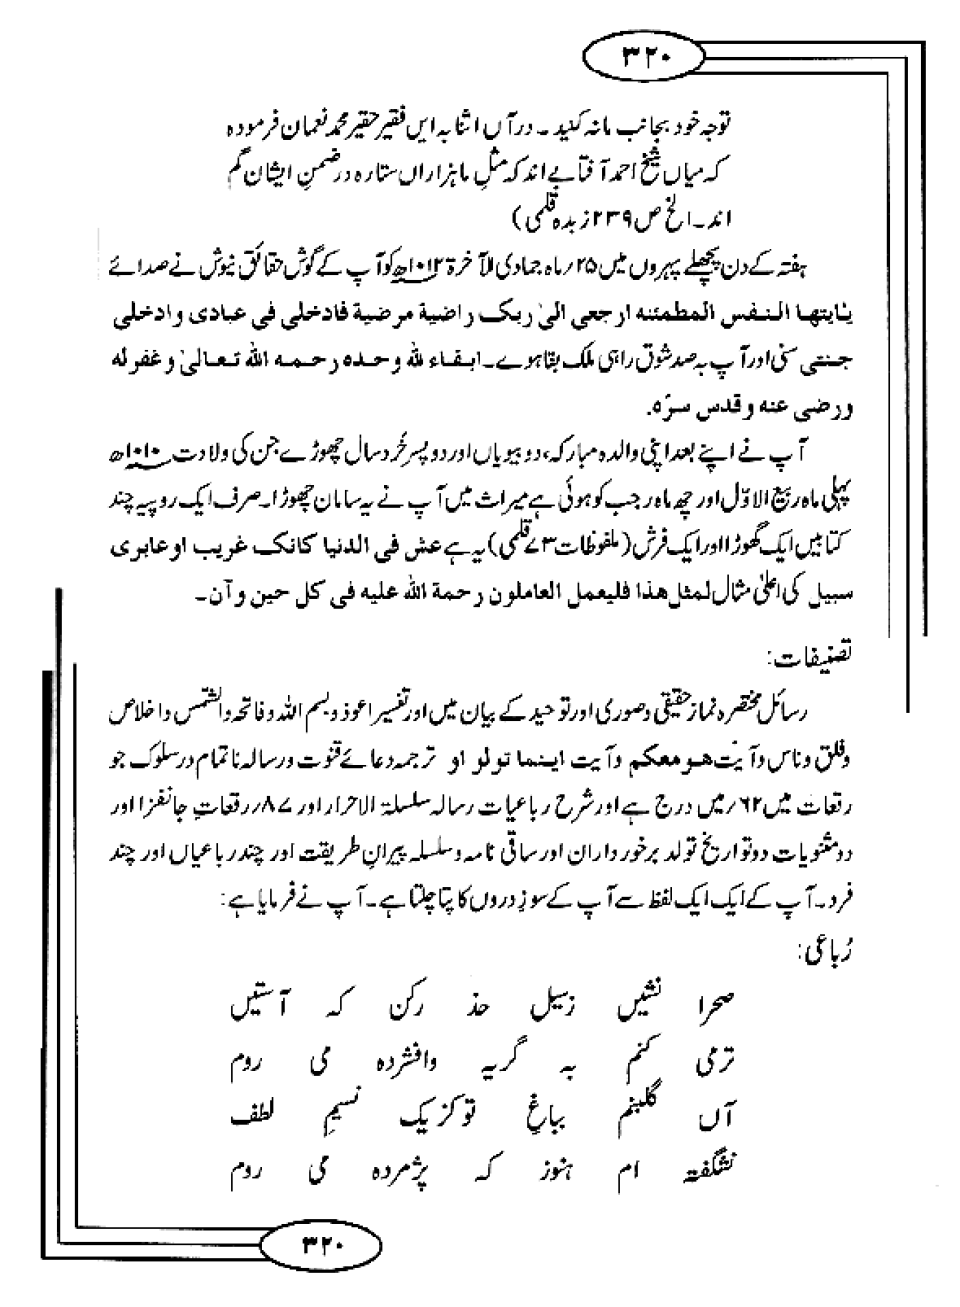 ۳۲۰
توجہ خود بجانب مانہ کنید۔ درآں اثنا بہ ایں فقیر حقیر محمد نعمان فرمودہ
کہ میاں شیخ احمد آفتابے اند کہ مثلِ ما ہزاراں ستارہ در ضمنِ ایشان گم
اند۔ الخ ص ۲۳۹ زبدہ قلمی)
ہفتہ کے دن پچھلے پہروں میں ۲۵/ ماہ جمادی الآخرۃ ۱۰۱۲ھ کو آپ کے گوش حقائق نیوش نے صدائے
یٰایتھا النفس المطمئنہ ارجعی الیٰ ربک راضیۃ مرضیۃ فادخلی فی عبادی وادخلی
جنتی سنی اور آپ بہ صد شوق راہی ملک بقا ہوے۔ ابقاء للہ وحدہ رحمہ اللہ تعالیٰ وغفرلہ
ورضی عنہ وقدس سرّہ.
آپ نے اپنے بعد اپنی والدہ مبارکہ، دو بیویاں اور دو پسر خُرد سال چھوڑے جن کی ولادت ۱۰۱۰ھ
پہلی ماہ ربیع الاوّل اور چھ ماہ رجب کو ہوئی ہے میراث میں آپ نے یہ سامان چھوڑا۔ صرف ایک روپیہ چند
کتابیں ایک گھوڑا اور ایک فرش (ملفوظات ۷۳ قلمی) یہ ہے عش فی الدنیا کانک غریب اوعابری
سبیل کی اعلیٰ مثال لمثل ھذا فلیعمل العاملون رحمۃ اللہ علیہ فی کل حین وآن۔
تصنیفات:
رسائل مختصرہ نماز حقیقی وصوری اور توحید کے بیان میں اور تفسیر اعوذ وبسم اللہ وفاتحہ والشمس واخلاص
وفلق وناس وآیت ھو معکم وآیت اینما تولو او ترجمہ دعائے قنوت ورسالہ ناتمام در سلوک جو
رقعات میں ۶۲/ میں درج ہے اور شرح رباعیات رسالہ سلسلۃ الاحرار اور ۸۷/ رقعاتِ جانفزا اور
دو مثنویات دو تواریخ تولد برخورداران اور ساقی نامہ وسلسلہ پیرانِ طریقت اور چند رباعیاں اور چند
فرد۔ آپ کے ایک ایک لفظ سے آپ کے سوزِ دروں کا پتا چلتا ہے۔ آپ نے فرمایا ہے:
رُباعی:
صحرا نشیں زسیل حذ رکن کہ آستیں
ترمی کنم بہ گریہ وافشردہ می روم
آں گلبنم بباغِ توکزیک نسیمِ لطف
نشگفتہ ام ہنوز کہ پژمردہ می روم
۳۲۰